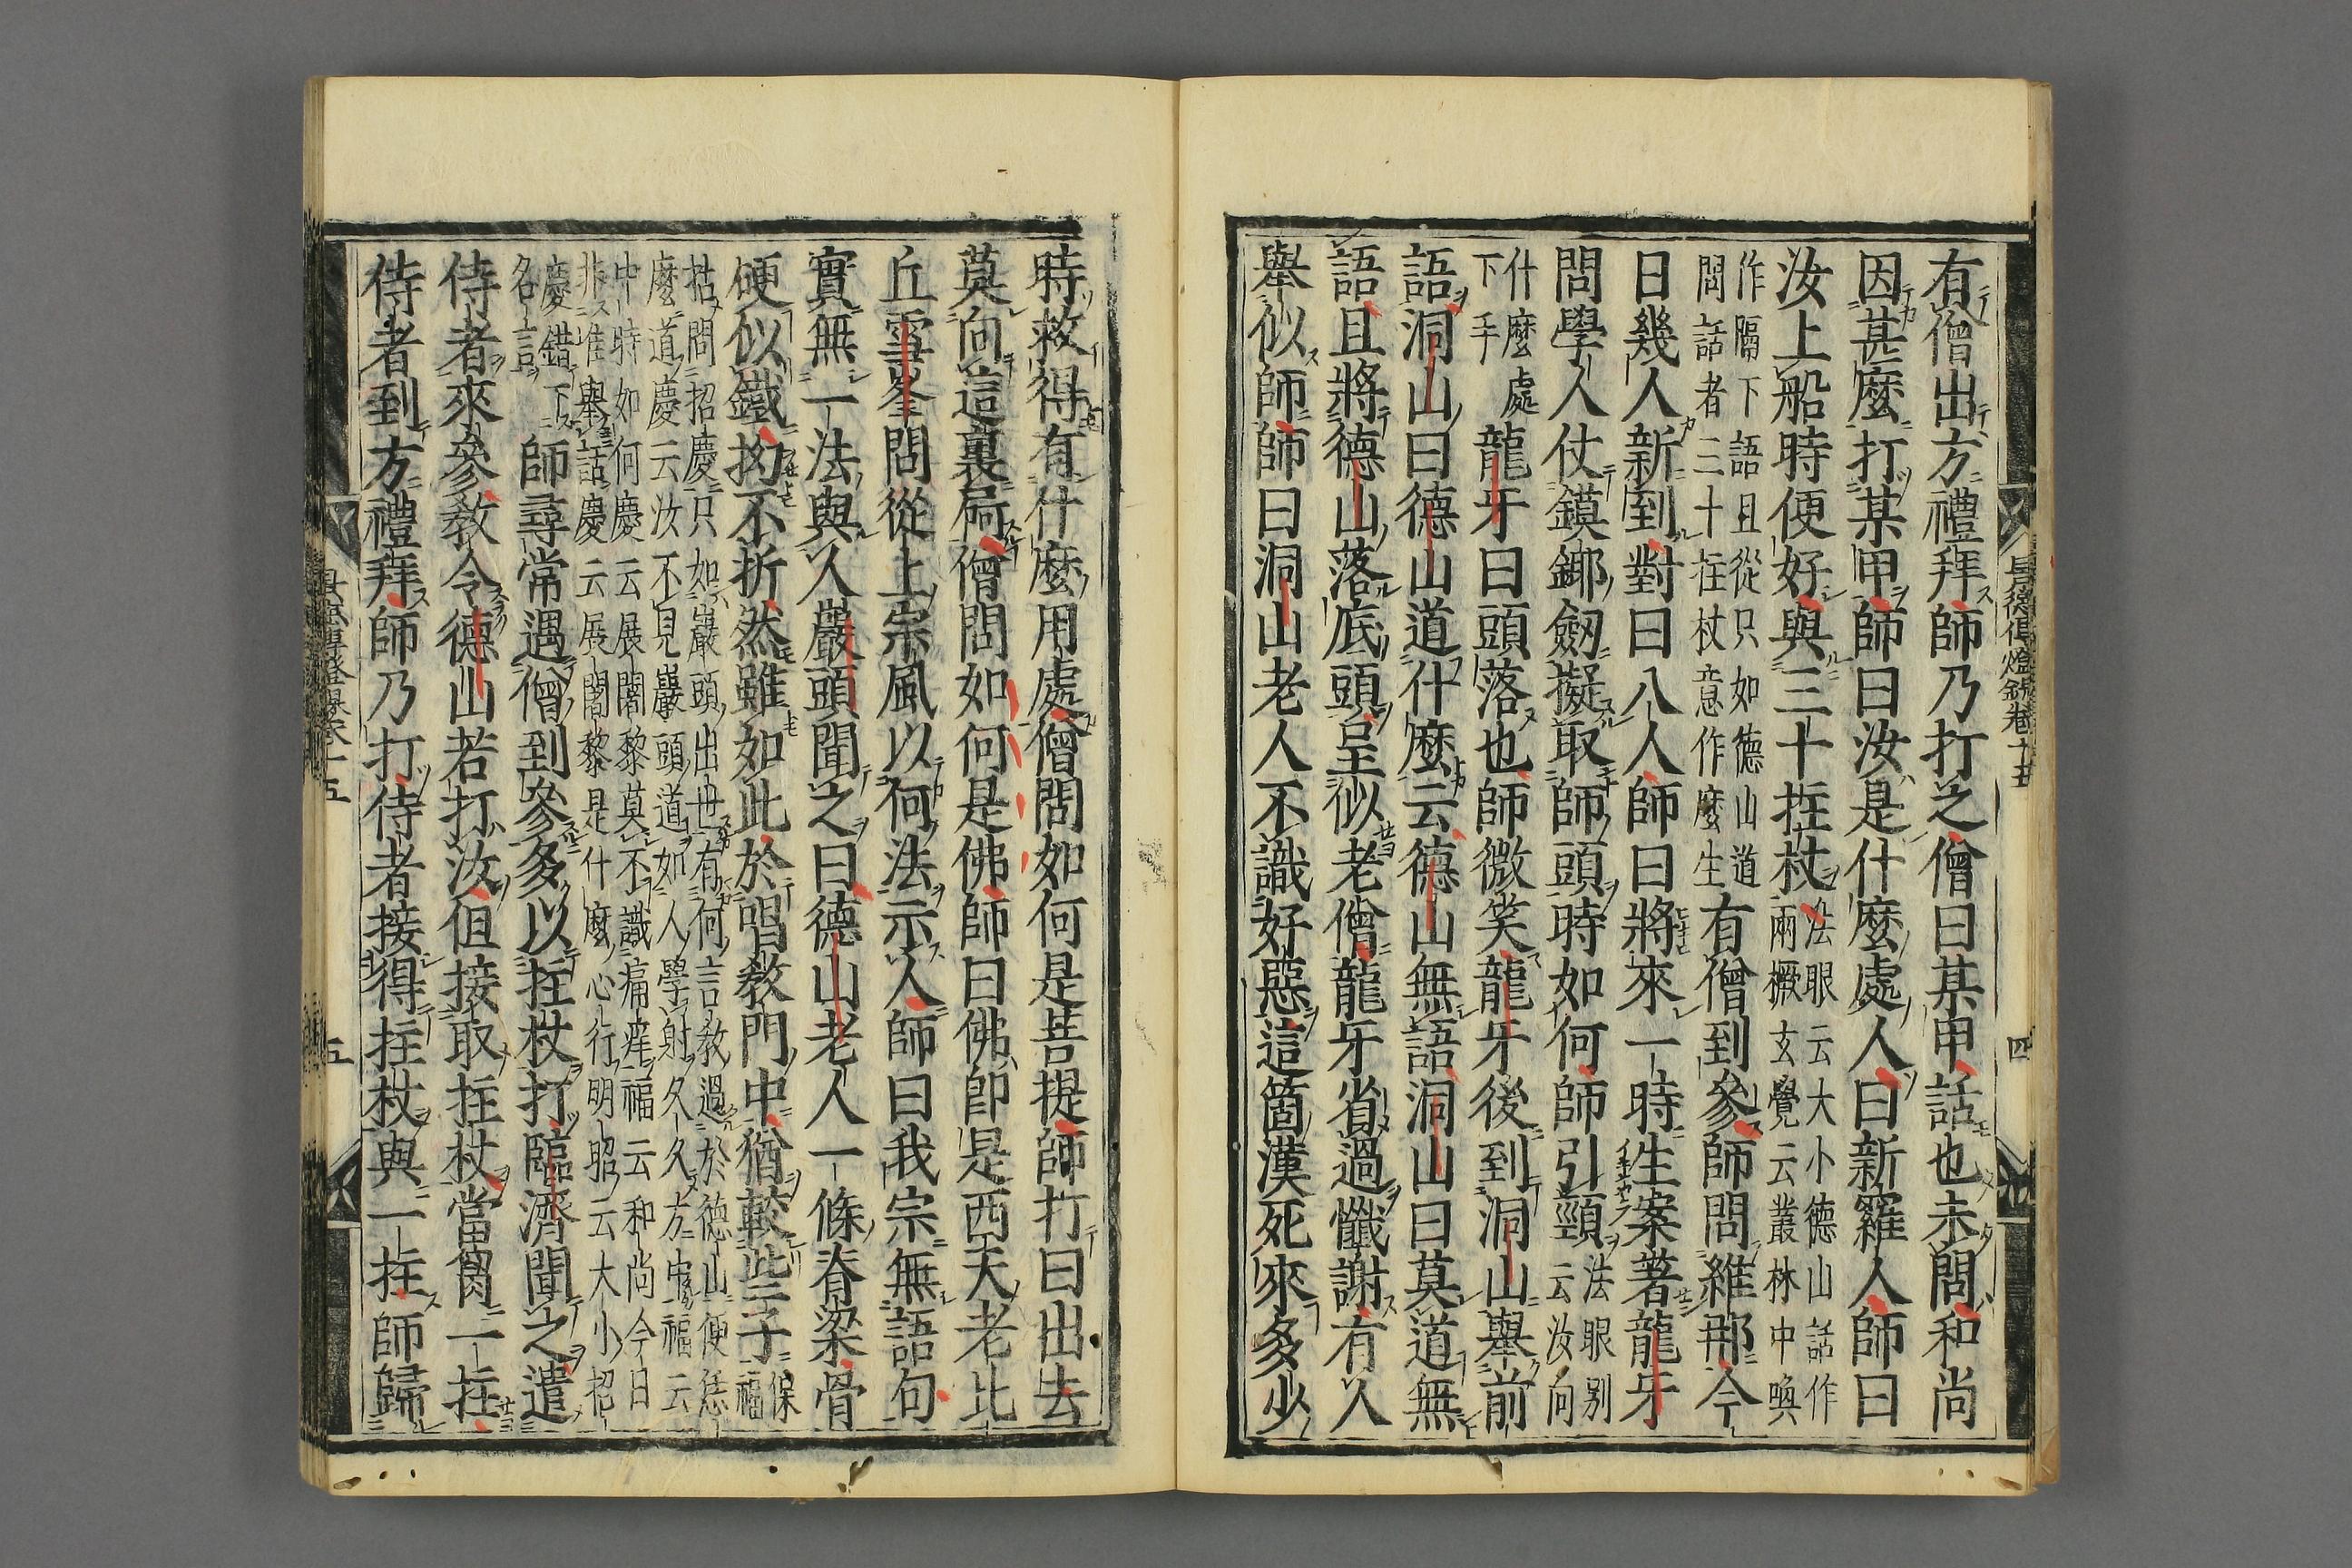 有僧出方禮拜師乃打之僧曰某甲話也未問和尚
因甚麼打某甲師曰汝是什麼處人曰新羅人師曰
汝上船時便好與三十拄杖法眼云大小德山話作
兩橛玄覺云叢林中喚
作隔下語且從只如德山道
問話者三十拄杖意作麼生有僧到參師問維那今
日幾人新到對曰八人師曰將來一時生案著龍牙
問學人仗鏌鎁劒擬取師頭時如何師引頸法眼别
云汝向
什麼處
下手龍牙曰頭落也師微笑龍牙後到洞山舉前
語洞山曰德山道什麼云德山無語洞山曰莫道無
語且將德山落底頭呈似老僧龍牙省過懺謝有人
舉似師師曰洞山老人不識好惡這箇漢死來多少
景德傳燈錄卷十五
四
時救得有什麼用處僧問如何是菩提師打曰出去
莫向這裏屙僧問如何是佛師曰佛即是西天老比
丘雪峯問從上宗風以何法示人師曰我宗無語句
實無一法與人巖頭聞之曰德山老人一條脊梁骨
硬似鐵拗不折然雖如此於唱教門中猶較些子保
福
拈問招慶只如巖頭出世有何言教過於德山便恁
麼道慶云汝不見巖頭道如人學射久久方中福云
中時如何慶云展闍黎莫不識痛痒福云和尚今日
非唯舉話慶云展闍黎是什麼心行明昭云大小招
慶錯下
名言師尋常遇僧到參多以拄杖打臨濟聞之遣
侍者來參教令德山若打汝但接取拄杖當胷一拄
侍者到方禮拜師乃打侍者接得拄杖與一拄師歸
景德傳燈錄卷十五
五